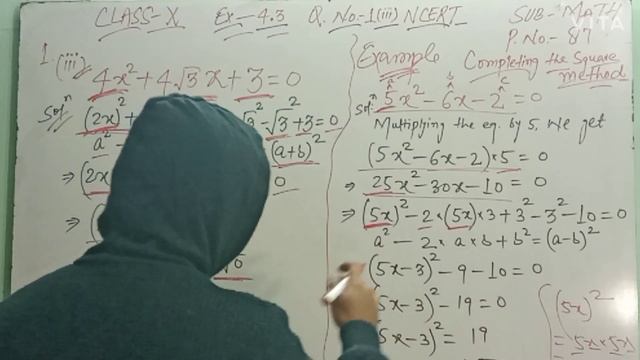 CLASS-X Ex-4.3 Q. No.-1(iii) NCERT SUB-MATH
P.No.-87
VITA
1.
(iii) 4x²+4√3x+3=0
Solⁿ (2x)²+ √3²-√3²+3=0
a² (a+b)²
⇒ (2x 0
⇒ (
√0
Example Completing the Square method
a b c
Solⁿ 5x²-6x-2=0
Multiplying the eq. by 5, we get
(5x²-6x-2)×5=0
⇒ 25x²-30x-10=0
⇒ (5x)²-2×(5x)×3+3²-3²-10=0
a²-2×a×b+b²=(a-b)²
(5x-3)²-9-10=0
5x-3)²-19=0
5x-3)²=19
(5x)²
=5x×5x